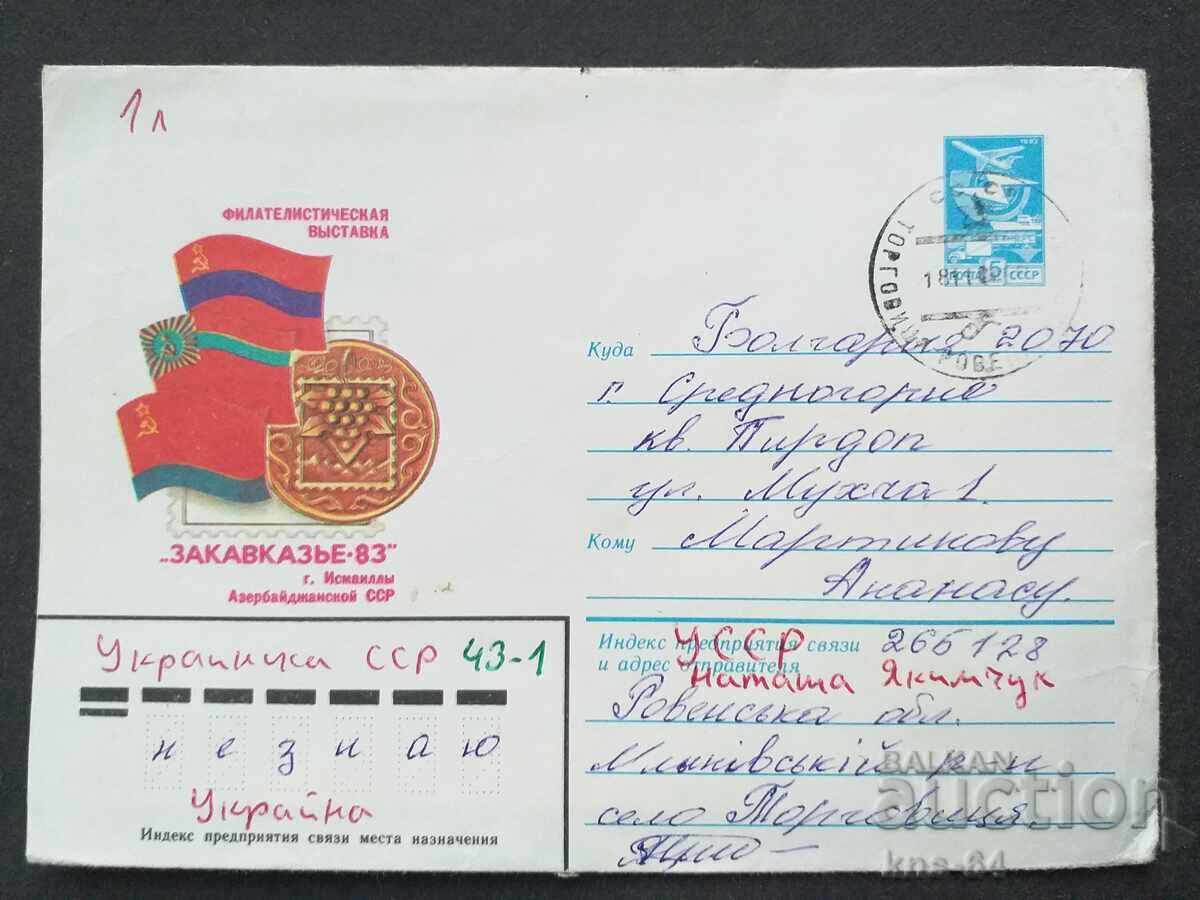 1л
ФИЛАТЕЛИСТИЧЕСКАЯ
ВЫСТАВКА
„ЗАКАВКАЗЬЕ·83"
г. Исмаиллы
Азербайджанской ССР
ПОЧТА 5 СССР
ТОРГОВИ
Куда Болгария 2070
г. Средногорие
кв. Пирдоп
ул. Мухча 1.
Кому Мартинову
Ананасу.
Украинска ССР 43-1
незнаю
Украйна
Индекс предприятия связи места назначения
Индекс предприятия связи 265128
и адрес отправителя
УССР
Наташа Якимчук
Ровенська обл.
Млынівській р-н
село Торговиця.
BALKAN
auction
kns-64